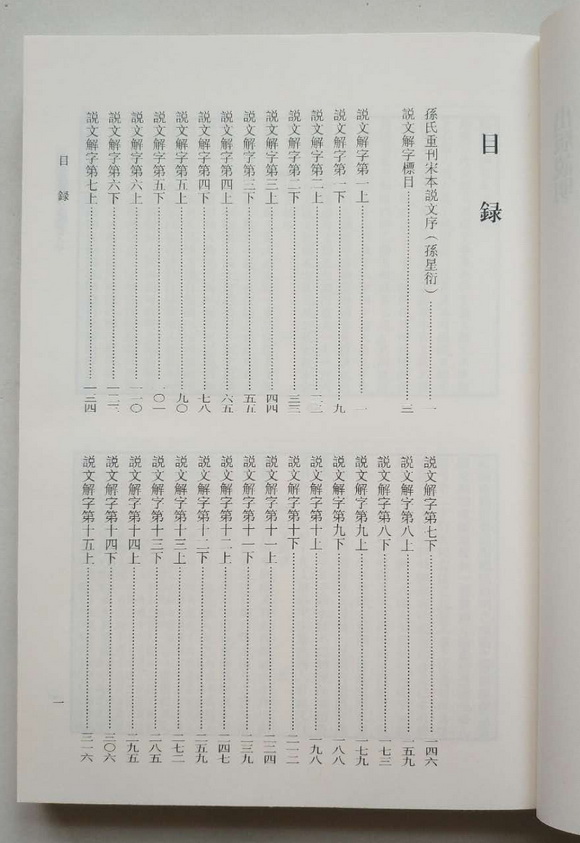 目録
孫氏重刊宋本説文序（孫星衍）……一
説文解字標目……三
説文解字第一上……一
説文解字第一下……九
説文解字第二上……二二
説文解字第二下……三三
説文解字第三上……四四
説文解字第三下……五五
説文解字第四上……六五
説文解字第四下……七八
説文解字第五上……九〇
説文解字第五下……一〇一
説文解字第六上……一一〇
説文解字第六下……一二二
説文解字第七上……一三四
説文解字第七下……一四六
説文解字第八上……一五九
説文解字第八下……一七三
説文解字第九上……一七九
説文解字第九下……一八八
説文解字第十上……一九八
説文解字第十下……二一二
説文解字第十一上……二二四
説文解字第十一下……二三九
説文解字第十二上……二四七
説文解字第十二下……二五九
説文解字第十三上……二七二
説文解字第十三下……二八五
説文解字第十四上……二九五
説文解字第十四下……三〇六
説文解字第十五上……三一六
目録
一